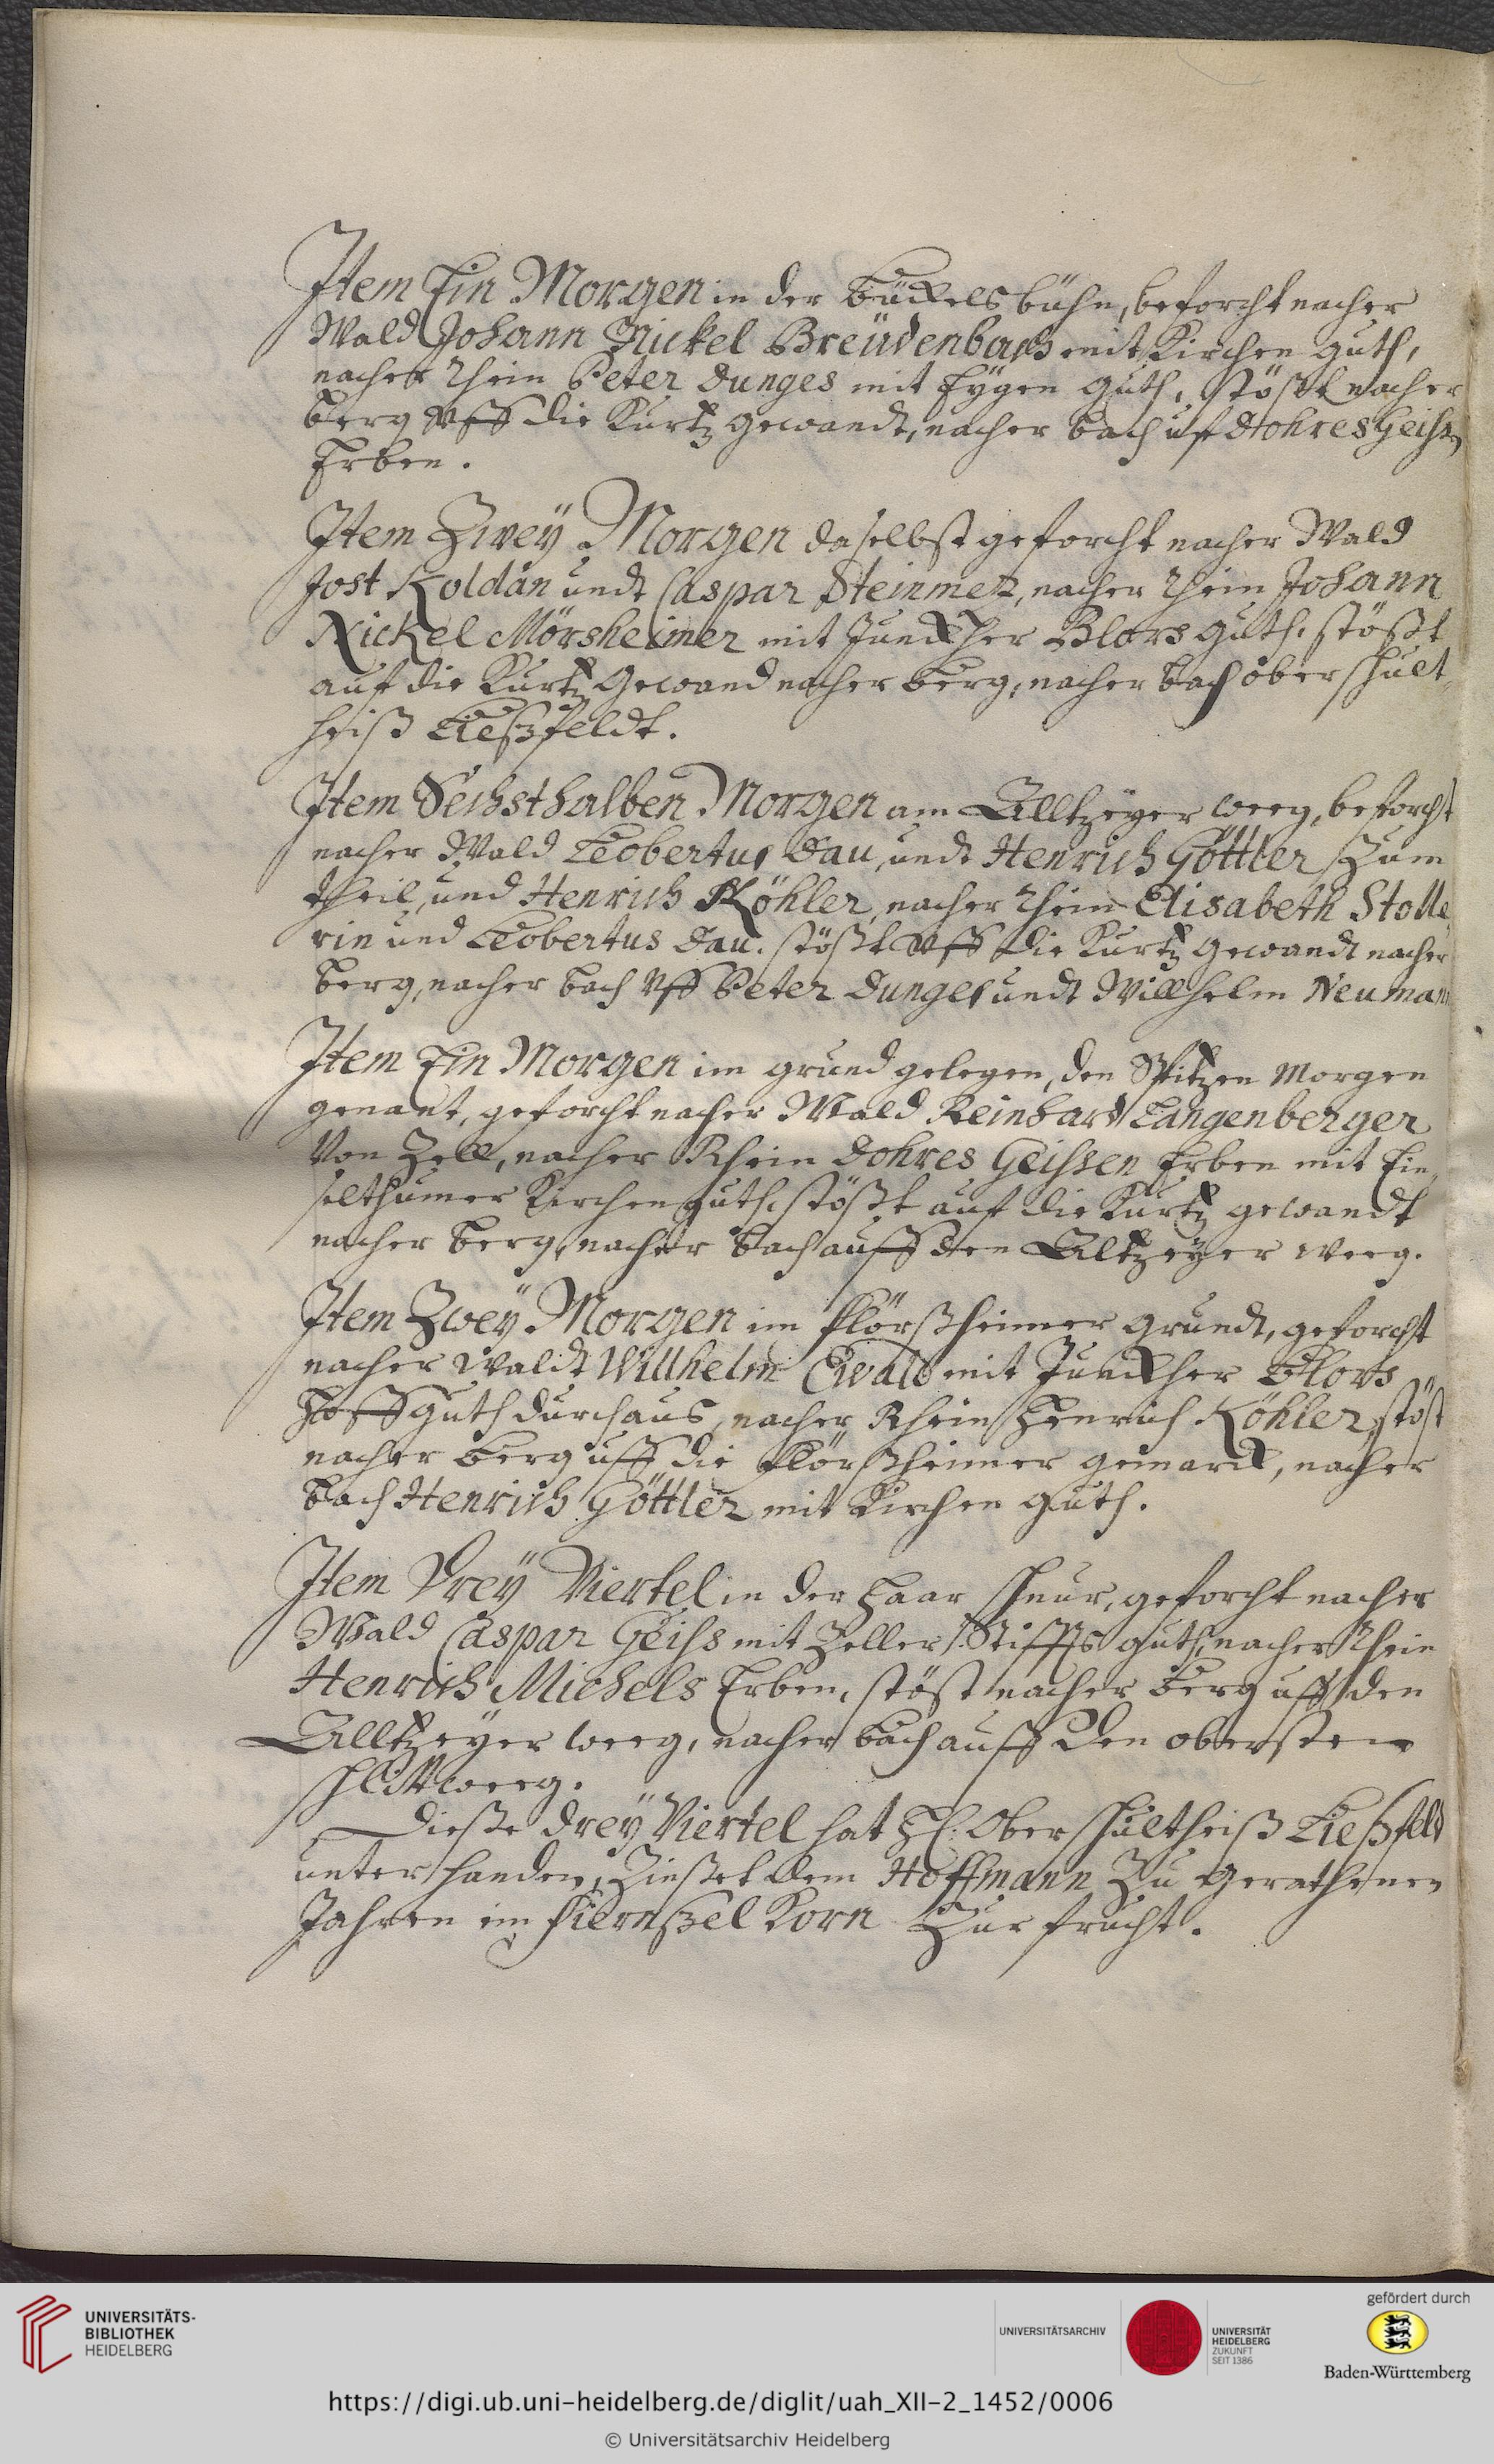 Item Ein Morgen in der Bückelsbühn, beforcht nacher
Wald Johann Nickel Breüdenbach mit Kirchen guth,
nacher Rhein Peter Dunges mit Eygen guth, stößt nacher
berg Uff die Kurtz gewandt, nacher bach uf Dohres Geißen
Erben.
Item Zwey Morgen daselbst geforcht nacher Wald
Jost Koldan undt Caspar Steinmetz, nacher Rhein Johann
Nickel Mörsheimer mit Junckher Blors guth, stößt
auf die Kurtz Gewand nacher berg, nacher bach oberschult-
heiß Ließfeldt.
Item Sechsthalben Morgen am Alltzeyer weeg, beforcht
nacher Wald Leobertus Dau, undt Henrich Göttler Zum
theil, und Henrich Köhler, nacher Rhein Elisabeth Stolle
rin und Leobertus Dau, stößt Uff die Kurtz gewandt nacher
berg, nacher bach Uff Peter Dunges undt Willhelm Neuman
Item Ein Morgen im grund gelegen, den Spitzen Morgen
genant, geforcht nacher Wald Reinhard Langenberger
Von Zell, nacher Rhein Dohres Geissen Erben mit Ein
selthumer Kirchen guth, stößt auf die Kurtz gewandt
nacher berg, nacher bach auff den Altzeyer weeg.
Item Zwey Morgen im flörßheimer grundt, geforcht
nacher Waldt Willhelm Ewald mit Junckher Blors
Hoff guth durchaus, nacher Rhein Henrich Köhler, stöst
nacher berg uff die flörßheimer gemarck, nacher
bach Henrich Göttler mit Kirchen guth.
Item Drey Viertel in der Haar schnur, geforcht nacher
Wald Caspar Geiss mit Zeller Stiffts guth, nacher Rhein
Henrich Michels Erben, stöst nacher berg uff den
Alltzeyer weeg, nacher bach auff den obersten
schlittweeg.
Dieße drey Viertel hat H: Oberschultheiß Ließfeld
unter handen, Zinßet dem Hoffmann Zu gerathenen
Jahren ein fiernßel Korn Zur frucht.
UNIVERSITÄTS-
BIBLIOTHEK
HEIDELBERG
UNIVERSITÄTSARCHIV
UNIVERSITÄT
HEIDELBERG
ZUKUNFT
SEIT 1386
gefördert durch
Baden-Württemberg
https://digi.ub.uni-heidelberg.de/diglit/uah_XII-2_1452/0006
© Universitätsarchiv Heidelberg